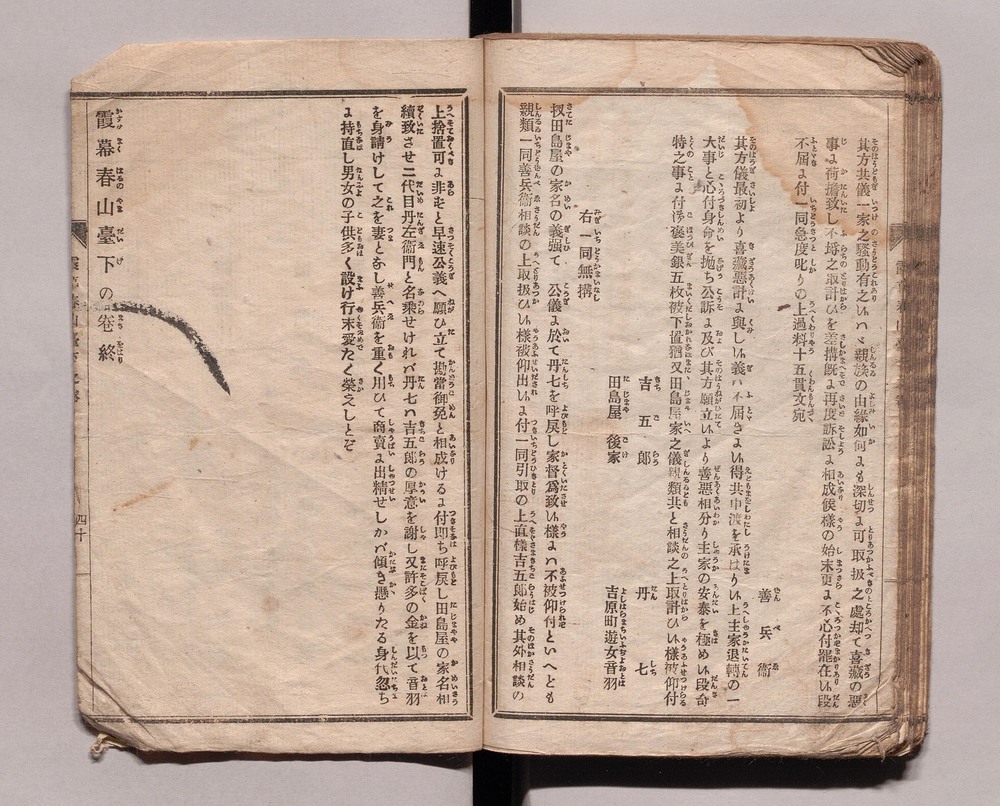 其方共儀一家之騒動有之いハヾ親族の由縁如何にも深切に可取扱之處却て喜藏の悪
事に荷擔致し不埒之取計ひを差搆既に再度訴訟に相成候樣の始末更に不心付罷在い段
不屆に付一同急度叱りの上過料十五貫文宛
善兵衞
其方儀最初より喜藏悪計に與しい義ハ不屆にい得共中渡を承はりい上主家退轉の一
大事と心付身命を抛ち公訴に及び其方願立いより善悪相分り主家の安泰を極めい段奇
特之事に付褒美銀五枚被下置猶又田島屋家之儀親類共と相談之上取計ひい樣被仰付
丹七
吉原町遊女音羽
吉五郎
田島屋後家
右一同無搆
扨田島屋の家名の義强て公儀に於て丹七を呼戻し家督爲致い樣にハ不被仰付といへとも
親類一同善兵衞相談の上取扱ひい樣被仰出いに付一同引取の上直樣吉五郎始め其外相談の
上捨置可に非ずと早速公義へ願ひ立て勘當御免と相成けるに付即ち呼戻し田島屋の家名相
續致させ二代目丹左衞門と名乘せけれバ丹七ハ吉五郎の厚意を謝し又許多の金を以て音羽
を身請けして之を妻となし善兵衞を重く用ひて商賣に出精せしかバ傾き懸りたる身代忽ち
に持直し男女の子供多く設け行末愛たく榮えしとぞ
霞幕春山臺下の卷終
四十